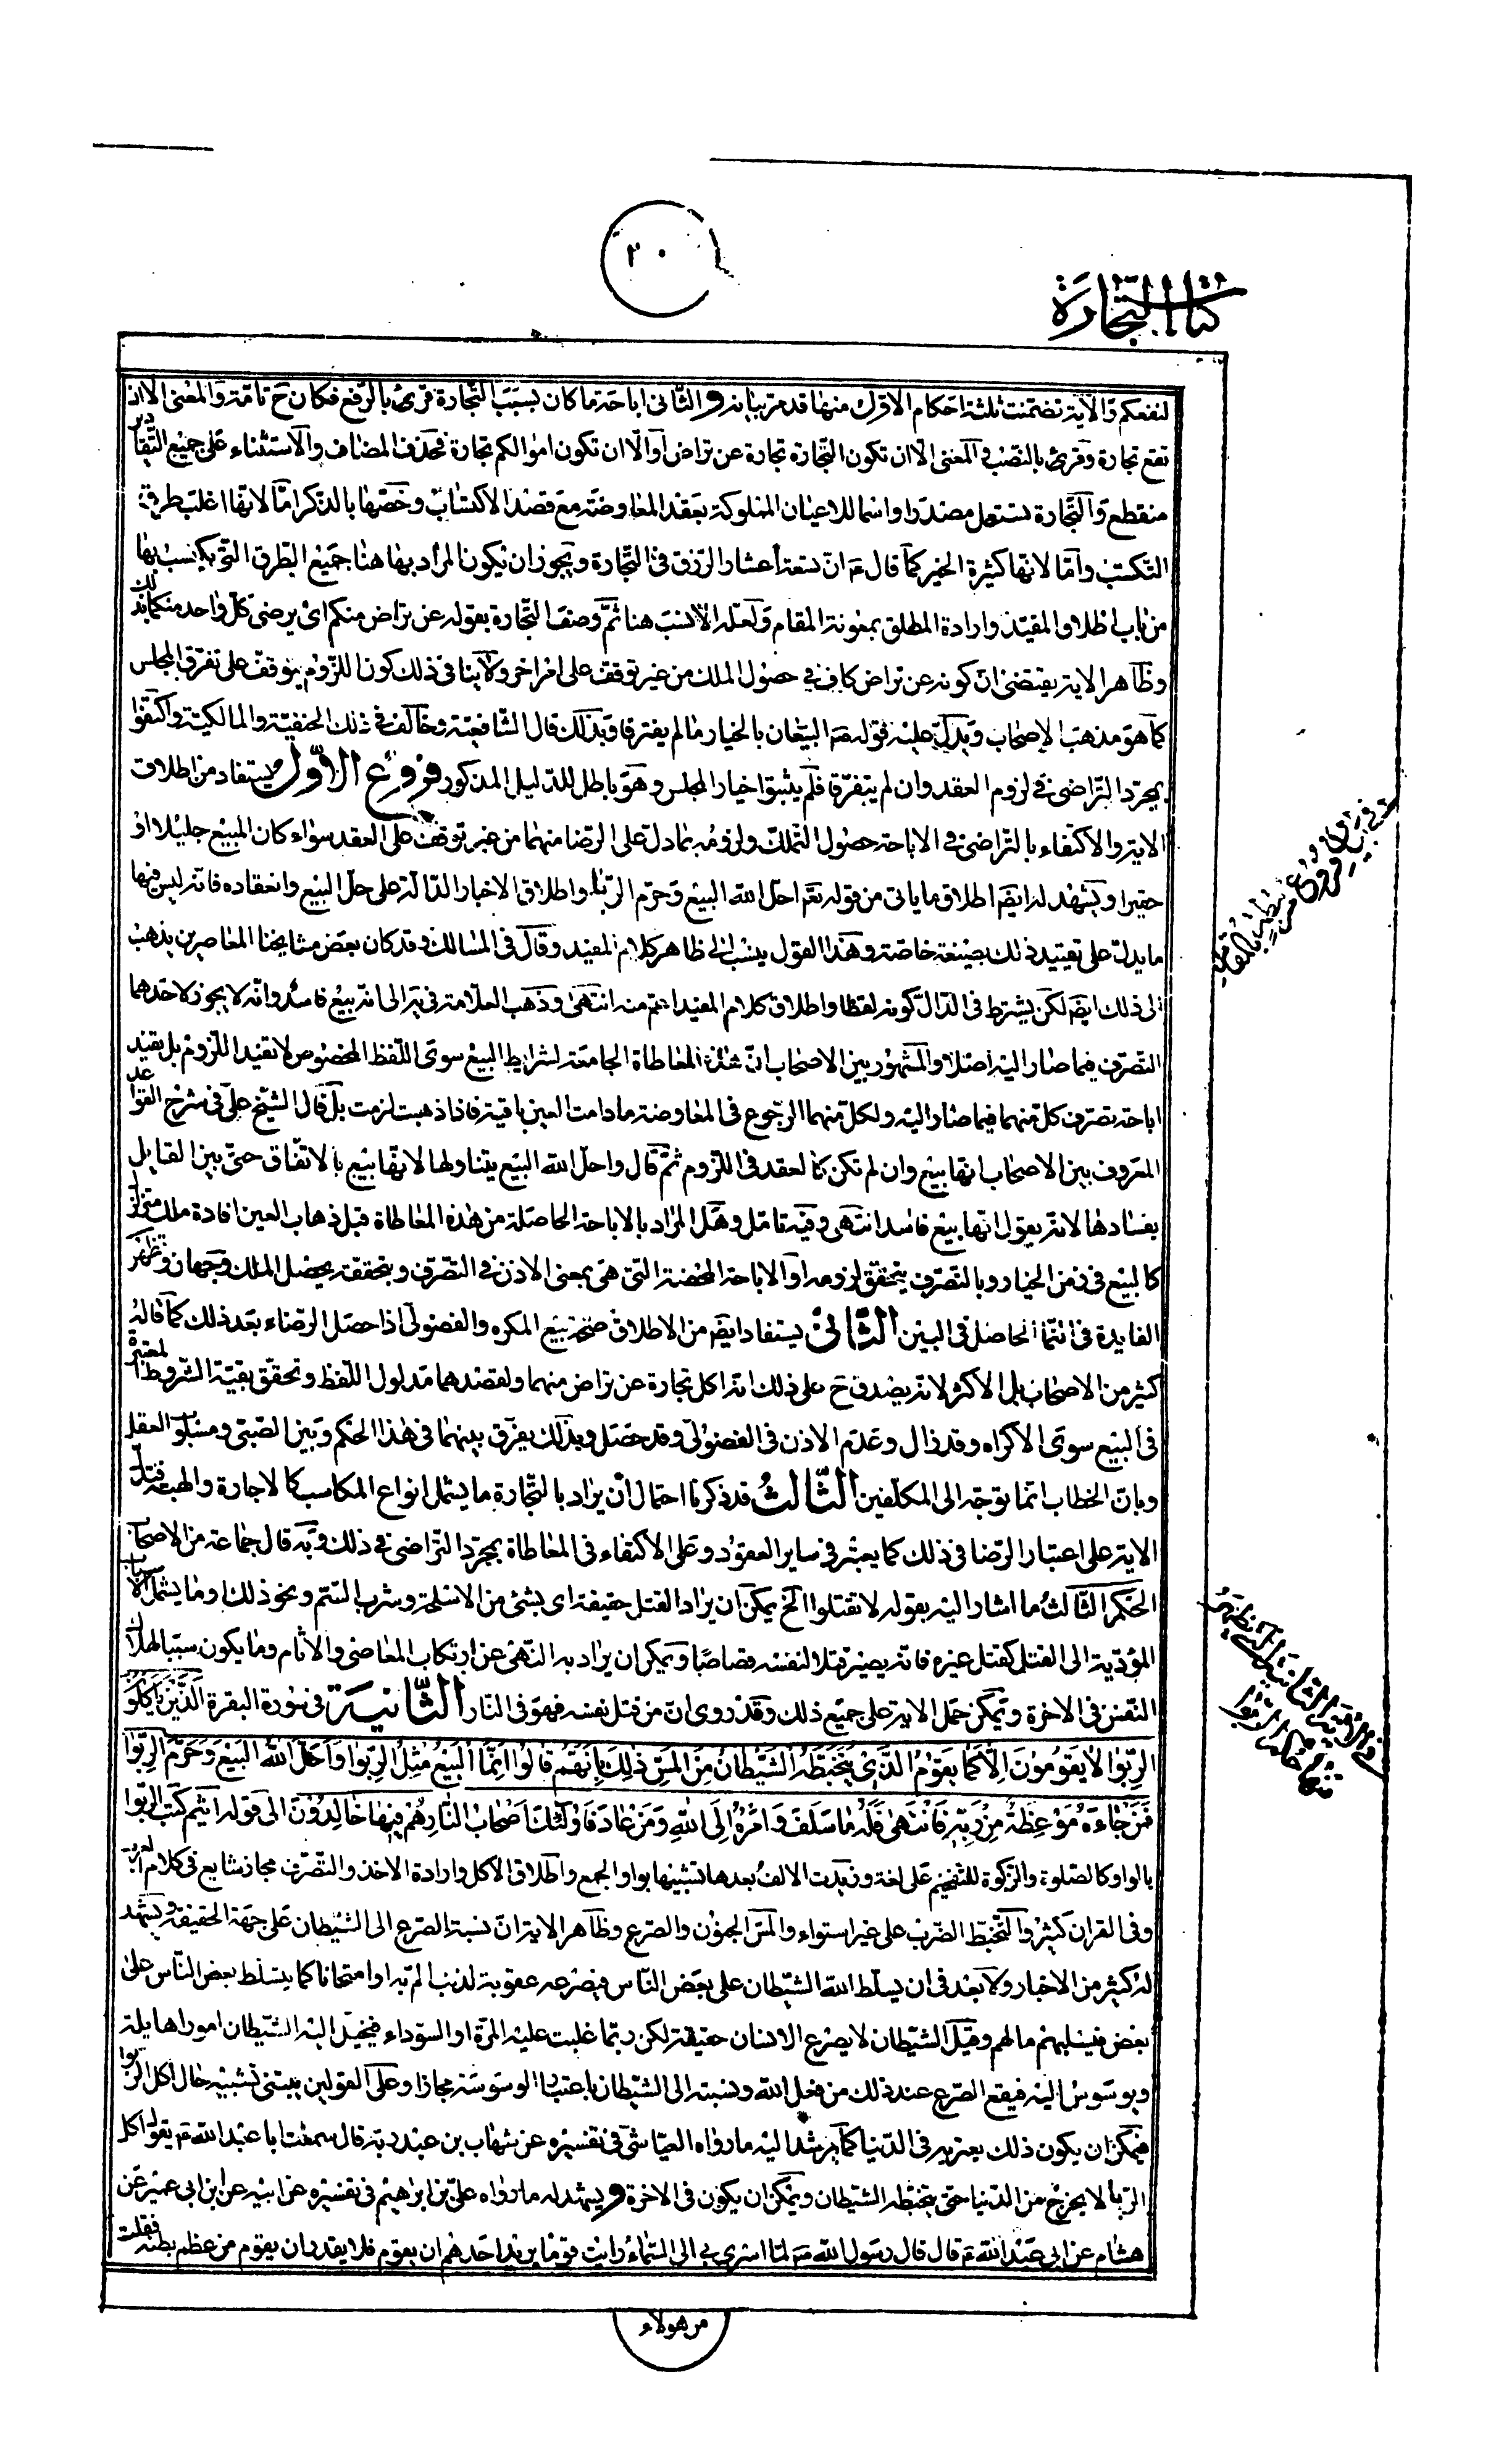 ٢٠
كتاب التجارة
لنفعكم والآية تضمنت ثلثة احكام الاول منها قد مر بيانه والثانى اباحة ما كان بسبب التجارة قرئ بالرفع فكان ح تامة والمعنى الا ان
تقع تجارة وقرئ بالنصب والمعنى الا ان تكون التجارة تجارة عن تراض او الا ان تكون اموالكم تجارة فحذف المضاف والاستثناء على جميع التقادير
منقطع والتجارة تستعمل مصدرا واسما للاعيان المملوكة بعقد المعاوضة مع قصد الاكتساب وخصها بالذكر اما لانها اغلب طرق
التكسب واما لانها كثيرة الخير كما قال ع ان تسعة اعشار الرزق فى التجارة ويجوز ان يكون المراد بها هنا جميع الطرق التى يكتسب بها
من باب اطلاق المقيد وارادة المطلق بمعونة المقام ولعله الانسب هنا ثم وصف التجارة بقوله عن تراض منكم اى يرضى كل واحد منكما بذلك
وظاهر الاية يقتضى ان كونه عن تراض كاف فى حصول الملك من غير توقف على امر اخر ولا ينافى ذلك كون اللزوم يتوقف على تفرق المجلس
كما هو مذهب الاصحاب ويدل عليه قوله ص البيعان بالخيار ما لم يفترقا وبذلك قال الشافعية وخالف فى ذلك الحنفية والمالكية واكتفوا
بمجرد التراضى فى لزوم العقد وان لم يتفرقا فلم يثبتوا خيار المجلس وهو باطل للدليل المذكور فروع الاول يستفاد من اطلاق
الاية والاكتفاء بالتراضى فى الاباحة حصول التملك ولزومه بما دل على الرضا منهما من غير توقف على العقد سواء كان المبيع جليلا او
حقيرا ويشهد له ايضا اطلاق ما ياتى من قوله تع احل الله البيع وحرم الربا واطلاق الاخبار الدالة على حل البيع وانعقاده فانه ليس فيها
ما يدل على تقييد ذلك بصيغة خاصة وهذا القول ينسب الى ظاهر كلام المفيد وقال فى المسالك وقد كان بعض مشايخنا المعاصرين يذهب
الى ذلك ايضا لكن يشترط فى الدال كونه لفظا واطلاق كلام المفيد اعم منه انتهى وذهب العلامة فى ية الى انه بيع فاسد وانه لا يجوز لاحدهما
التصرف فيما صار اليه اصلا والمشهور بين الاصحاب ان هذه المعاطاة الجامعة لشرايط البيع سوى اللفظ المخصوص لا تفيد اللزوم بل تفيد
اباحة تصرف كل منهما فيما صار اليه ولكل منهما الرجوع فى المعاوضة ما دامت العين باقية فاذا ذهبت لزمت بل قال الشيخ على فى شرح القواعد
المعروف بين الاصحاب انها بيع وان لم تكن كالعقد فى اللزوم ثم قال واحل الله البيع يتناولها لانها بيع بالاتفاق حتى بين القايل
بفسادها لانه يقول انها بيع فاسد انتهى وفيه تامل وهل المراد بالاباحة الحاصلة من هذه المعاطاة قبل ذهاب العين افادة ملك متزلزل
كالبيع فى زمن الخيار وبالتصرف يتحقق لزومه او الاباحة المحضة التى هى بمعنى الاذن فى التصرف وبتحققه يحصل الملك وجهان وتظهر
الفايدة فى النماء الحاصل فى البين الثانى يستفاد ايضا من الاطلاق صحة بيع المكره والفضولى اذا حصل الرضاء بعد ذلك كما قاله
كثير من الاصحاب بل الاكثر لانه يصدق ح على ذلك انه اكل تجارة عن تراض منهما ولقصدهما مدلول اللفظ وتحقق بقية الشروط المعتبرة
فى البيع سوى الاكراه وقد زال وعدم الاذن فى الفضولى وقد حصل وبذلك يفرق بينهما فى هذا الحكم وبين الصبى ومسلوب العقل
وبان الخطاب انما توجه الى المكلفين الثالث قد ذكرنا احتمال ان يراد بالتجارة ما يشمل انواع المكاسب كالاجارة والهبة فتدل
الاية على اعتبار الرضا فى ذلك كما يعتبر فى ساير العقود وعلى الاكتفاء فى المعاطاة بمجرد التراضى فى ذلك وبه قال جماعة من الاصحاب
الحكم الثالث ما اشار اليه بقوله لا تقتلوا الخ يمكن ان يراد القتل حقيقة اى بشئ من الاسلحة وشرب السم ونحو ذلك وما يشمل الاسباب
المؤدية الى القتل كقتل غيره فانه يصير قتلا لنفسه قصاصا ويمكن ان يراد به النهى عن ارتكاب المعاصى والاثام وما يكون سببا لهلاك
النفس فى الاخرة ويمكن حمل الاية على جميع ذلك وقد روى ان من قتل نفسه فهو فى النار الثانية فى سورة البقرة الذين ياكلون
الربوا لا يقومون الا كما يقوم الذى يتخبطه الشيطان من المس ذلك بانهم قالوا انما البيع مثل الربوا واحل الله البيع وحرم الربوا
فمن جاءه موعظة من ربه فانتهى فله ما سلف وامره الى الله ومن عاد فاولئك اصحاب النار هم فيها خالدون الى قوله اثيم كتب الربوا
بالواو كالصلوة والزكوة للتفخيم على لغة وزيدت الالف بعدها تشبيها بواو الجمع واطلاق الاكل وارادة الاخذ والتصرف مجاز شايع فى كلام العرب
وفى القران كثير والتخبط الضرب على غير استواء والمس الجنون والصرع وظاهر الاية ان نسبة الصرع الى الشيطان على جهة الحقيقة ويشهد
له كثير من الاخبار ولا بعد فى ان يسلط الله الشيطان على بعض الناس فيصرعه عقوبة لذنب الم به او امتحانا كما يسلط بعض الناس على
بعض فيسلبهم مالهم وقيل الشيطان لا يصرع الانسان حقيقة لكن ربما غلبت عليه المرة او السوداء فيخيل اليه الشيطان امورا هايلة
ويوسوس اليه فيقع الصرع عند ذلك من فعل الله ونسبته الى الشيطان باعتبار الوسوسة مجازا وعلى القولين يبتنى تشبيه حال اكل الربوا
فيمكن ان يكون ذلك يعتريه فى الدنيا كما يرشد اليه ما رواه العياشى فى تفسيره عن شهاب بن عبد ربه قال سمعت ابا عبد الله ع يقول اكل
الربا لا يخرج من الدنيا حتى يتخبطه الشيطان ويمكن ان يكون فى الاخرة ويشهد له ما رواه على بن ابراهيم فى تفسيره عن ابيه عن ابن ابى عمير عن
هشام عن ابى عبد الله ع قال قال رسول الله ص لما اسرى بى الى السماء رايت قوما يريد احدهم ان يقوم فلا يقدر ان يقوم من عظم بطنه فقلت
من هولاء